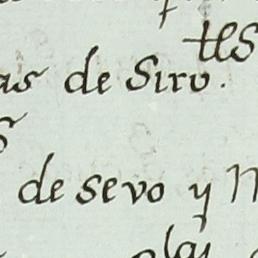 tls
as de Siro.
de sevo y